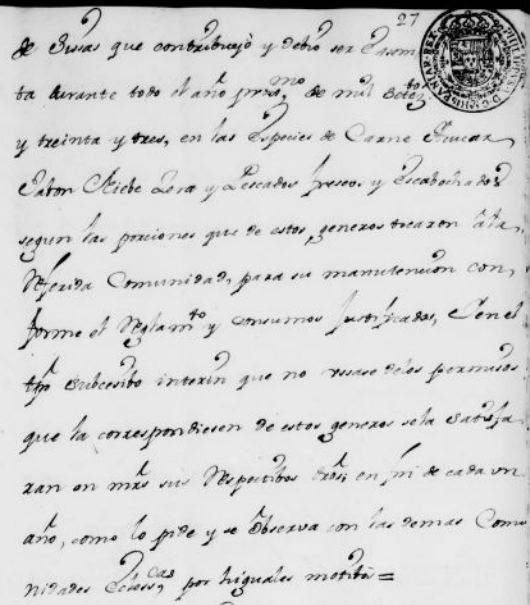 27
de Sissas que contribuyó y debió ser Exsem
ta durante todo el año proxᵐᵒ de mil Setezᵗᵒˢ
y treinta y tres, en las Especies de Carne Azucar
Jabon Niebe Zera y Pescados frescos y Escabechados
segun las porciones que de estos generos tocaron âla
Referida Comunidad, para su manutencion con,
forme el Reglamᵗᵒ y consumos Justificados, Y en el
tpo Subcesibo interin que no vsase delos permisos
que la correspondiesen de estos generos sela Satisfa
ran en mrs sus Respectibos dros, en fin de cada vn
año, como lo pide y se Observa con las demas Comu
nidades Eclessᶜᵃˢ por higuales motibos=